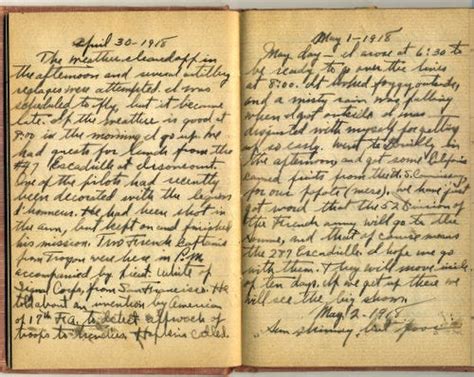 April 30-1918
The weather cleared off in
the afternoon and several artillery
reglages were attempted. I was
scheduled to fly, but it became
late. If the weather is good at
8:00 in the morning I go up. We
had guests for lunch from the
Escadrille at
One of the pilots had recently
been decorated with the legion
d'honneur. He had been shot in
the arm, but kept on and finished
his mission. Two French captains
from Troyon were here in P.M.
accompanied by Lieut. White of
Signal Corps, from San Francisco. He
told about an invention by American
of 17th F.A. to detect approach of
troops to trenches. Hopkins called.
May 1-1918
May day - I arose at 6:30 to
be ready to go over the lines
at 8:00. It looked foggy outside,
and a misty rain was falling
when I got outside. I was
disgusted with myself for getting
up so early. Went to Souilly in
the afternoon and got some Calif.
canned fruits from the U.S. Commissary
for our popote (mess). We have just
got word that the 52 Division of
the French army will go to the
Somme, and that of course means
the 277 Escadrille. I hope we go
with them. They will move inside
of ten days. If we get up there we
will see the big show.
May 2-1918
Sun shining, but